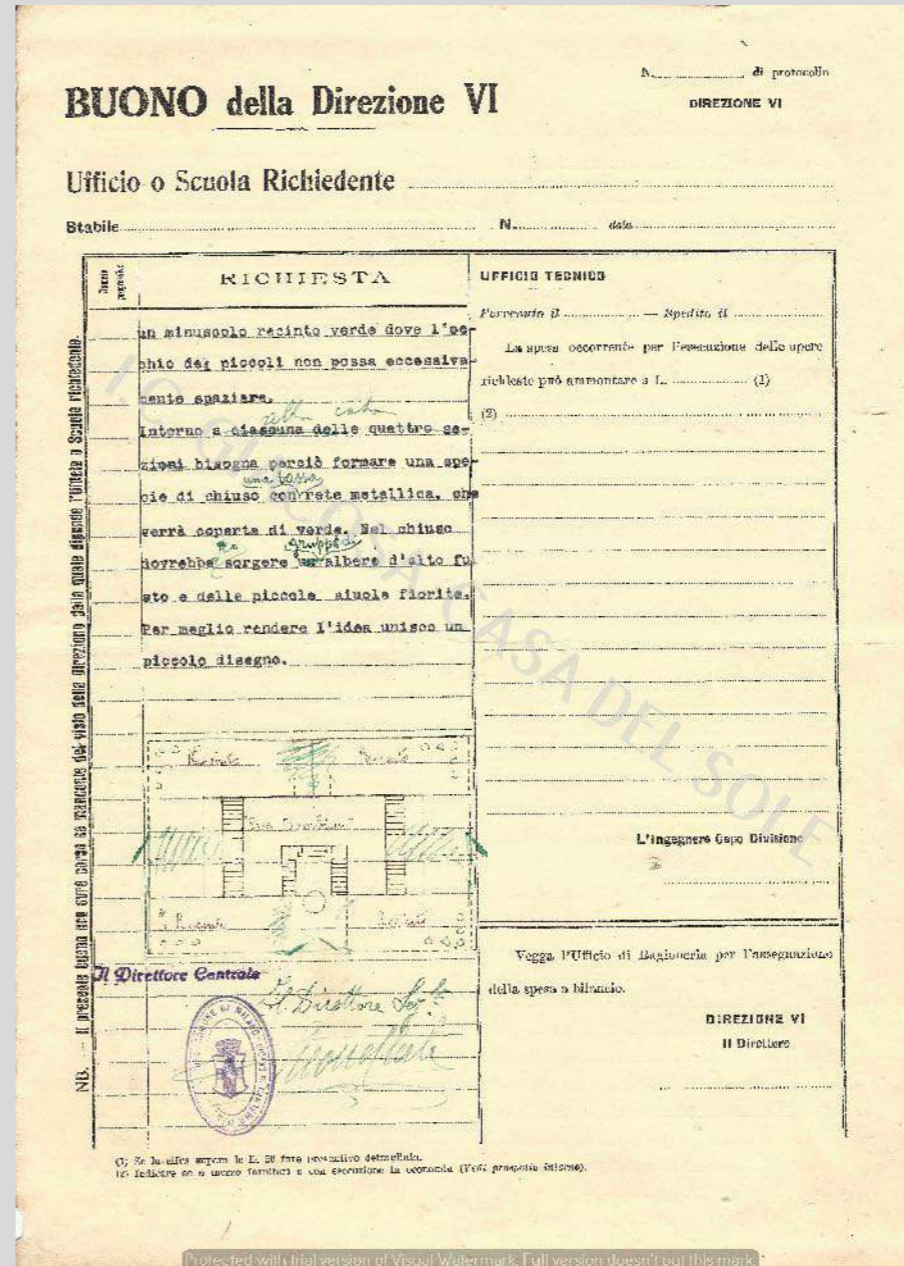 N. di protocollo
DIREZIONE VI
BUONO della Direzione VI
Ufficio o Scuola Richiedente
Stabile N. data
NB. — Il presente buono non avrà corso se mancante del visto della Direzione dalla quale dipende l'Ufficio o Scuola richiedente.
RICHIESTA
un minuscolo recinto verde dove l'oc-
chio dei piccoli non possa eccessiva-
mente spaziare.
Intorno a ciascuna delle quattro se-
zioni bisogna perciò formare una spe-
una bassa
cie di chiuso con rete metallica, che
verrà coperta di verde. Nel chiuso
gruppo di
dovrebbe sorgere un albero d'alto fu
sto e delle piccole aiuole fiorite.
Per meglio rendere l'idea unisco un
piccolo disegno.
Recinto Recinto
Recinto Recinto
Il Direttore Centrale
Il Direttore
UFFICIO TECNICO
Pervenuto il — Spedito il
La spesa occorrente per l'esecuzione delle opere
richieste può ammontare a L. (1)
(2)
L'Ingegnere Capo Divisione
Vegga l'Ufficio di Ragioneria per l'assegnazione
della spesa a bilancio.
DIREZIONE VI
Il Direttore
(1) Se la cifra supera le L. 50 fare preventivo dettagliato.
(2) Indicare se a mezzo fornitori o con esecuzione in economia (Vedi prospetto interno).
I.C. CASA DEL SOLE
Protected with trial version of Visual Watermark. Full version doesn't put this mark.